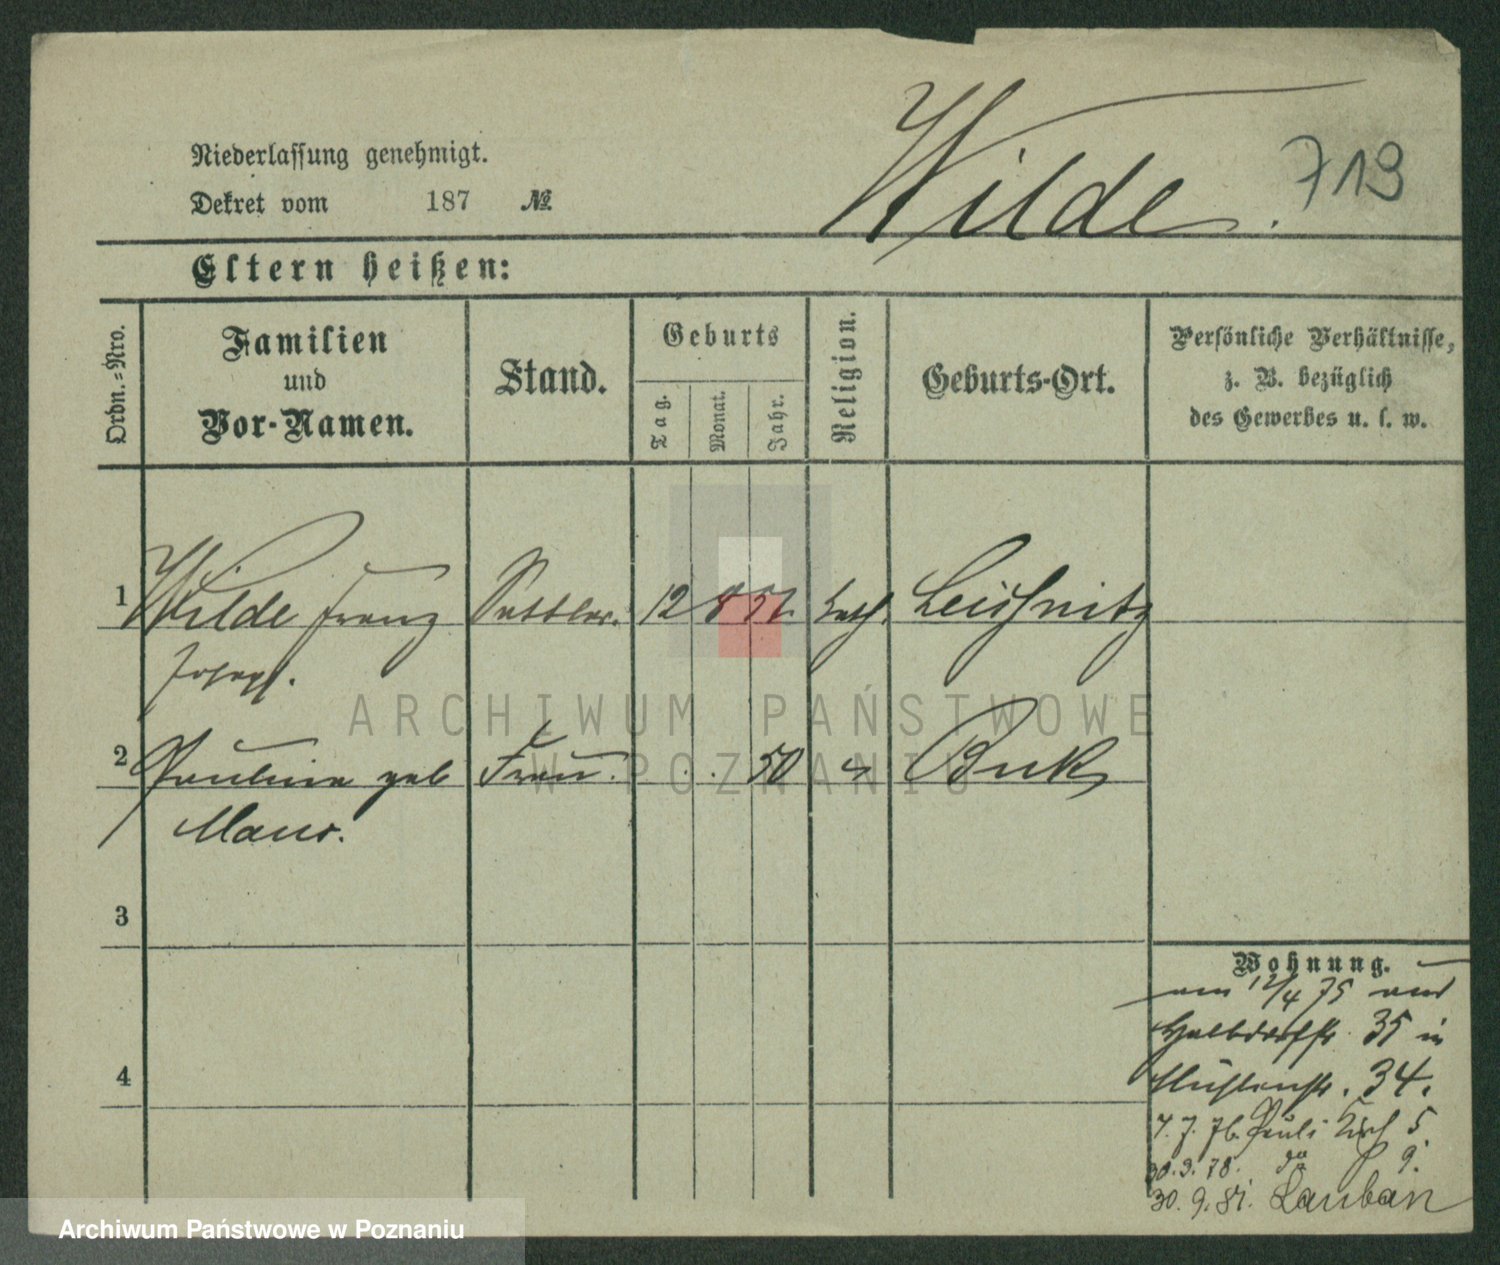 Wilde. 713
Niederlassung genehmigt.
Dekret vom 187 №
Eltern heißen:
Ordn.=Nro.
Familien
und
Vor-Namen.
Stand.
Geburts
Tag.
Monat.
Jahr.
Religion.
Geburts-Ort.
Persönliche Verhältnisse,
z. B. bezüglich
des Gewerbes u. s. w.
1 Wilde Franz Sattler. 12 8 51. kath.
Joseph.
2 Pauline geb Frau. 50 " Buk
3
4
Wohnung.
am 12/4 75 aus
Halbdorfstr. 35 in
Mühlenstr. 34.
7. 7. 76. Pauli Kirch 5.
30.9.78. do 9.
30. 9. 81. Lauban
ARCHIWUM PAŃSTWOWE
W POZNANIU
Archiwum Państwowe w Poznaniu